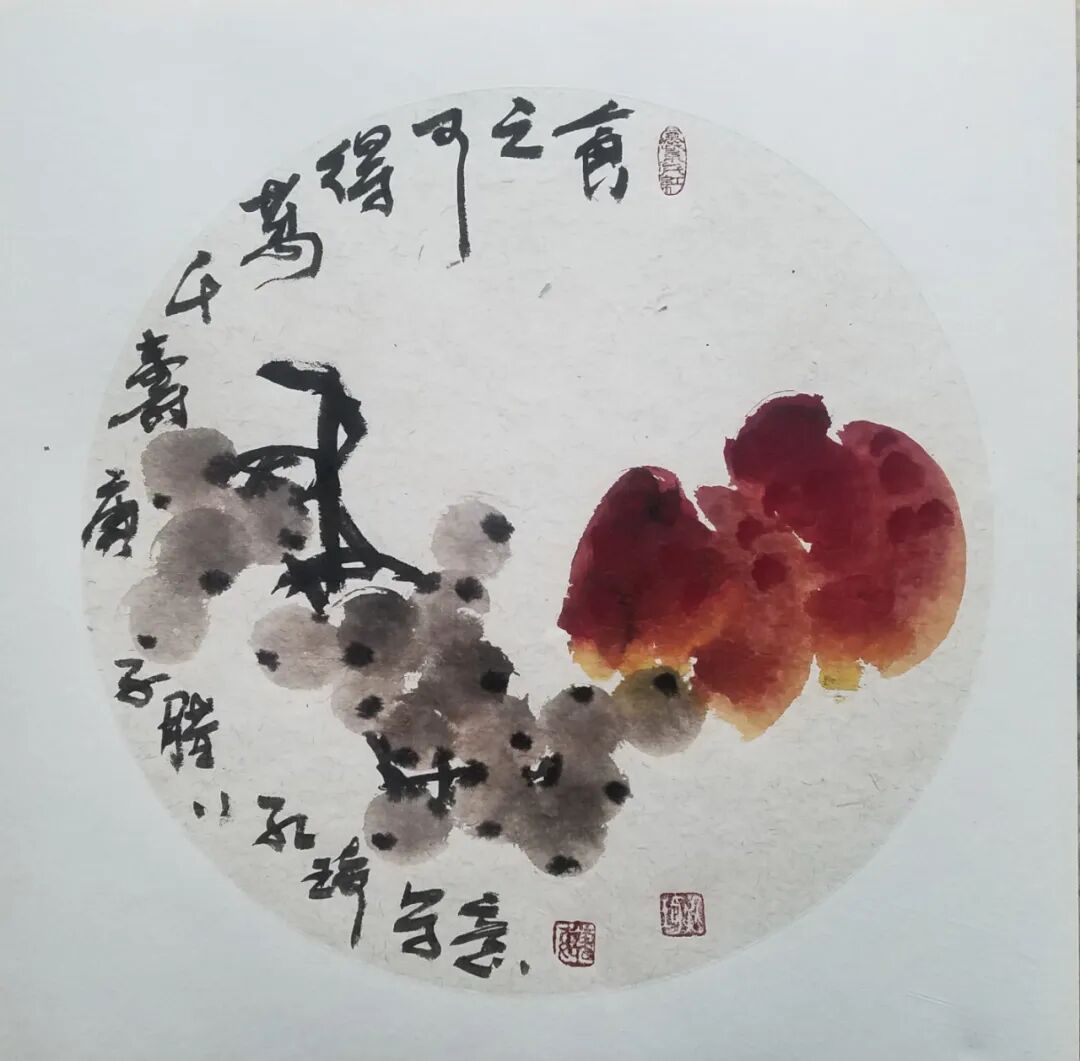 食之可得萬千壽庚子腊八孔琦写意